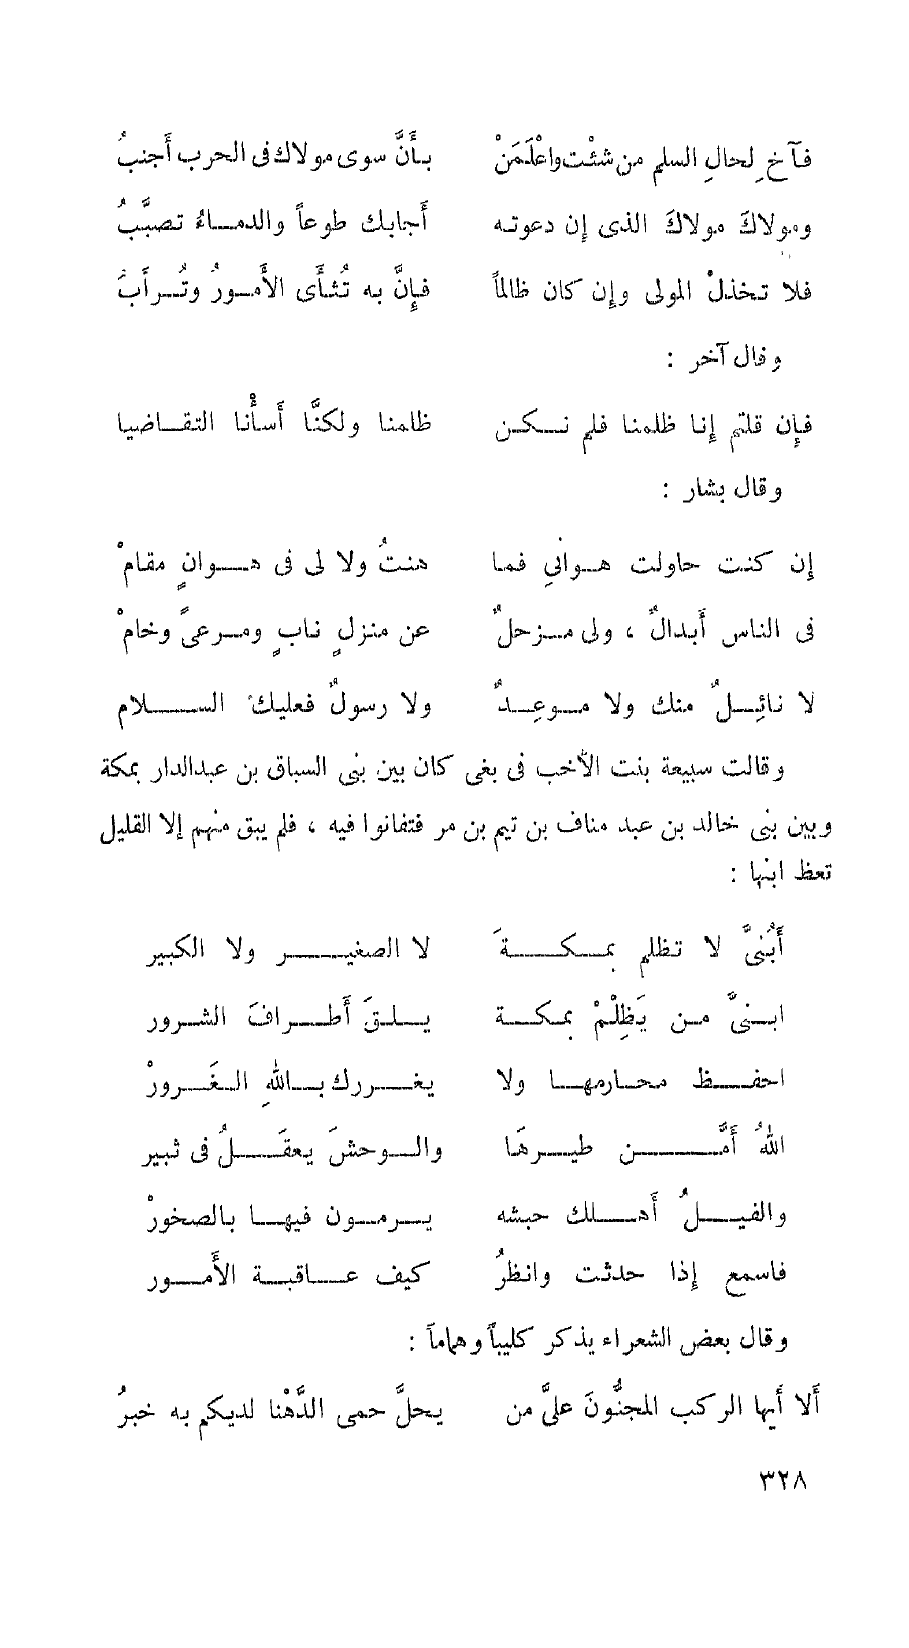 فآخِ لحالِ السلم من شئْت واعْلَمَنْ بأَنَّ سوى مولاك فى الحرب أَجنبُ
ومولاكَ مولاكَ الذى إن دعوته أَجابك طوعاً والدماءُ تصبَّبُ
فلا تخذلْ المولى وإن كان ظالماً فإِنَّ به تُثأَى الأَمورُ وتُرأَبُ
وقال آخر :
فإن قلتم إنا ظلمنا فلم نكن ظلمنا ولكنَّا أَسأْنا التقاضيا
وقال بشار :
إن كنت حاولت هوانىِ فما هنتُ ولا لى فى هوانٍ مقامْ
فى الناس أَبدالٌ ، ولى مزحلٌ عن منزلٍ نابٍ ومرعىً وخامْ
لا نائِلٌ منك ولا موعِدٌ ولا رسولٌ فعليك السلام
وقالت سبيعة بنت الأخب فى بغى كان بين بنى السباق بن عبدالدار بمكة
وبين بنى خالد بن عبد مناف بن تيم بن مر فتفانوا فيه ، فلم يبق منهم إلا القليل
تعظ ابنها :
أَبُنىَّ لا تظلم بمكةَ لا الصغير ولا الكبير
ابنىَّ من يَظلِمْ بمكة يلقَ أَطرافَ الشرور
احفظ محارمها ولا يغررك باللهِ الغَرورْ
اللهُ أَمَّن طيرهَا والوحشَ يعقَلُ فى ثبير
والفيلُ أَهلك حبشه يرمون فيها بالصخورْ
فاسمع إذا حدثت وانظرُ كيف عاقبة الأَمور
وقال بعض الشعراء يذكر كليباً وهماماً :
أَلا أَيها الركب المجنُّونَ علىَّ من يحلَّ حمى الدَّهْنا لديكم به خبرُ
٣٢٨